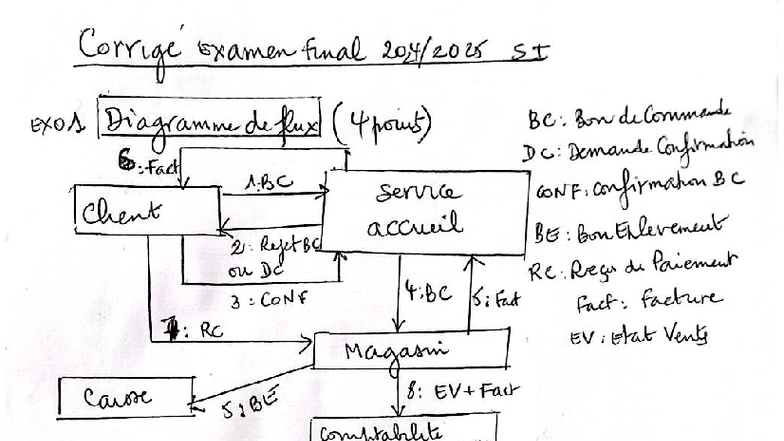 Corrigé Examen final 2024/2025 SI
EXO1 Diagramme de flux (4 points)
BC : Bon de Commande
DC : Demande Confirmation
CONF : Confirmation BC
BE : Bon Enlevement
RC : Reçu de Paiement
Fact : Facture
EV : Etat Vente
6 : Fact
1 : BC
Client
Service
accueil
2 : Rejet BC
ou DC
3 : CONF
4 : BC
5 : Fact
7 : RC
Magasin
Caisse
5 : BE
8 : EV + Fact
Comptabilité